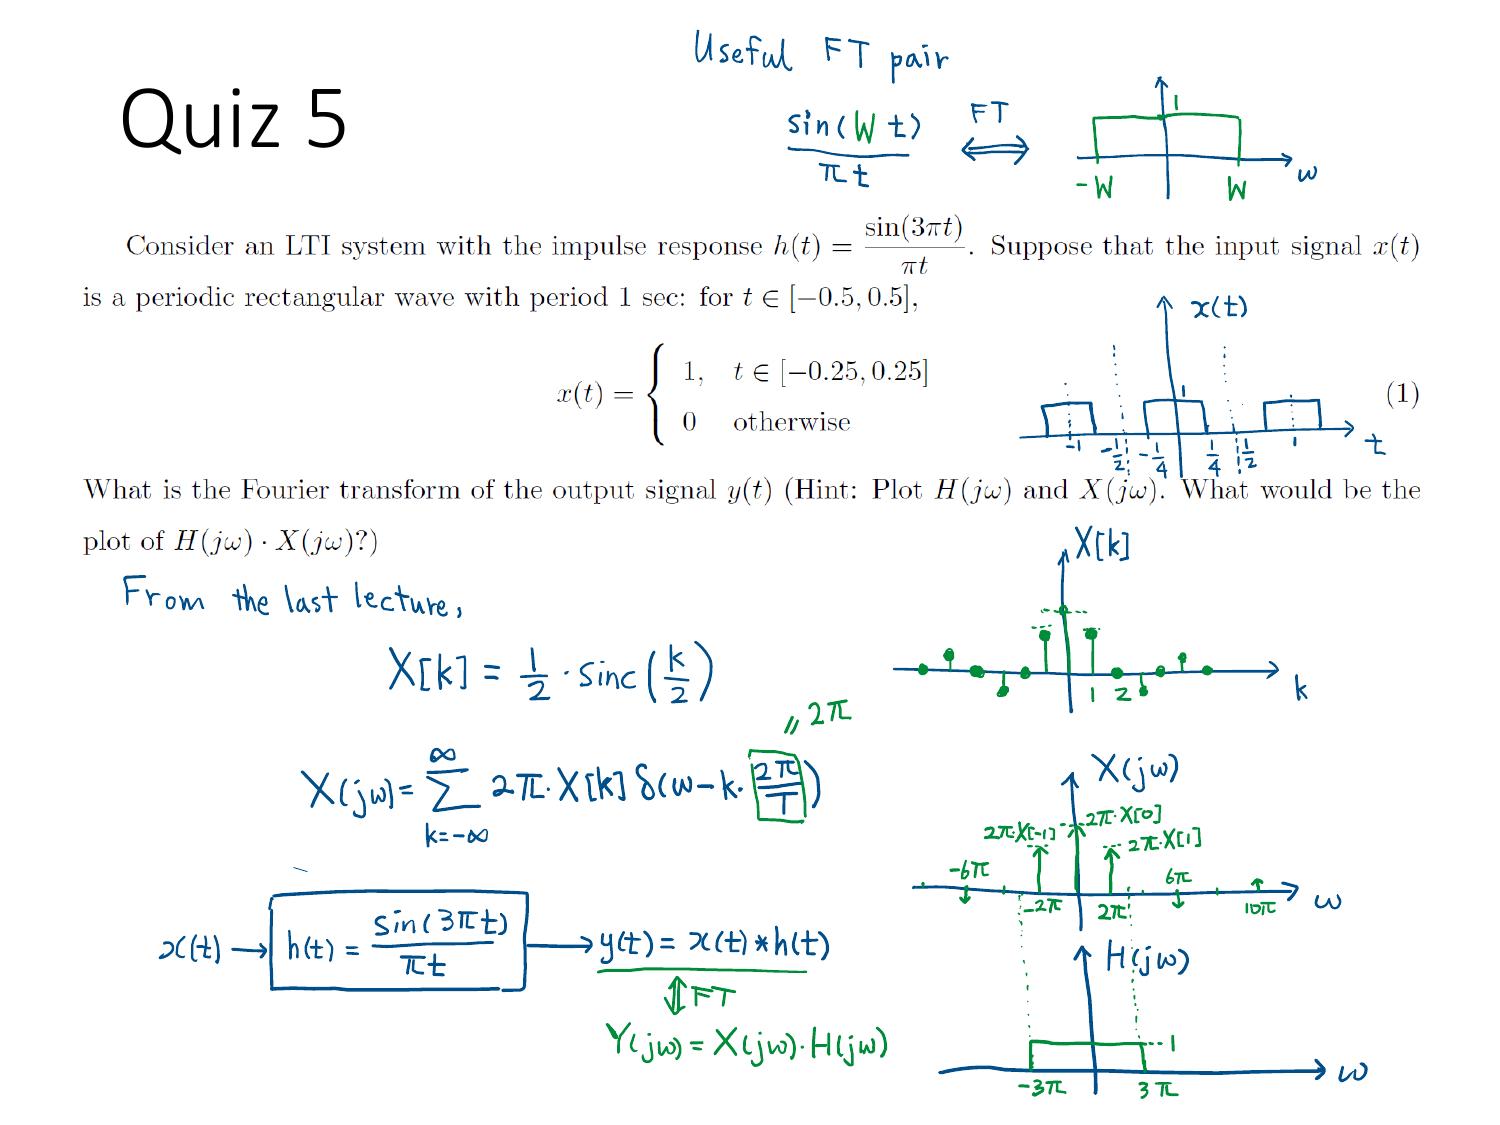 Useful FT pair
Quiz 5
sin(Wt)/πt ⟺ FT
1
-W W ω
Consider an LTI system with the impulse response h(t) = sin(3πt)/πt. Suppose that the input signal x(t)
is a periodic rectangular wave with period 1 sec: for t ∈ [−0.5, 0.5],
x(t) = { 1, t ∈ [−0.25, 0.25]
0 otherwise
(1)
x(t)
1
-1 -1/2 -1/4 1/4 1/2 1 t
What is the Fourier transform of the output signal y(t) (Hint: Plot H(jω) and X(jω). What would be the
plot of H(jω) · X(jω)?)
From the last lecture,
X[k]
X[k] = 1/2 · sinc(k/2)
1 2 k
= 2π
X(jω) = ∑ k=-∞ ∞ 2π·X[k] δ(ω-k·2π/T)
X(jω)
2π·X[-1] 2π·X[0]
2π·X[1]
-6π 6π
-2π 2π 10π ω
x(t) → h(t) = sin(3πt)/πt → y(t) = x(t)*h(t)
⇕ FT
Y(jω) = X(jω)·H(jω)
H(jω)
1
-3π 3π ω